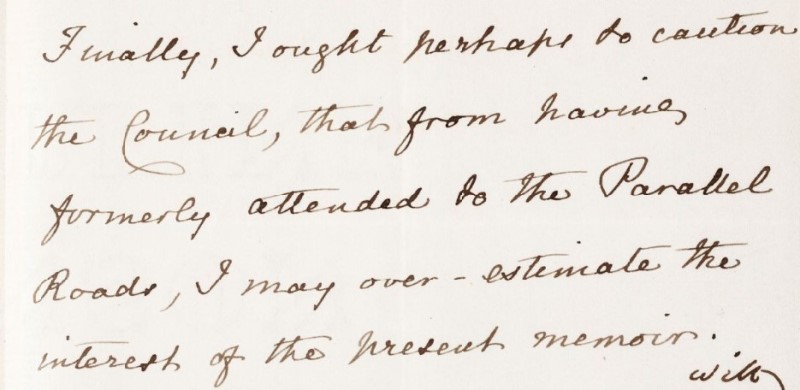 Finally, I ought perhaps to caution
the Council, that from having
formerly attended to the Parallel
Roads, I may over-estimate the
interest of the present memoir.